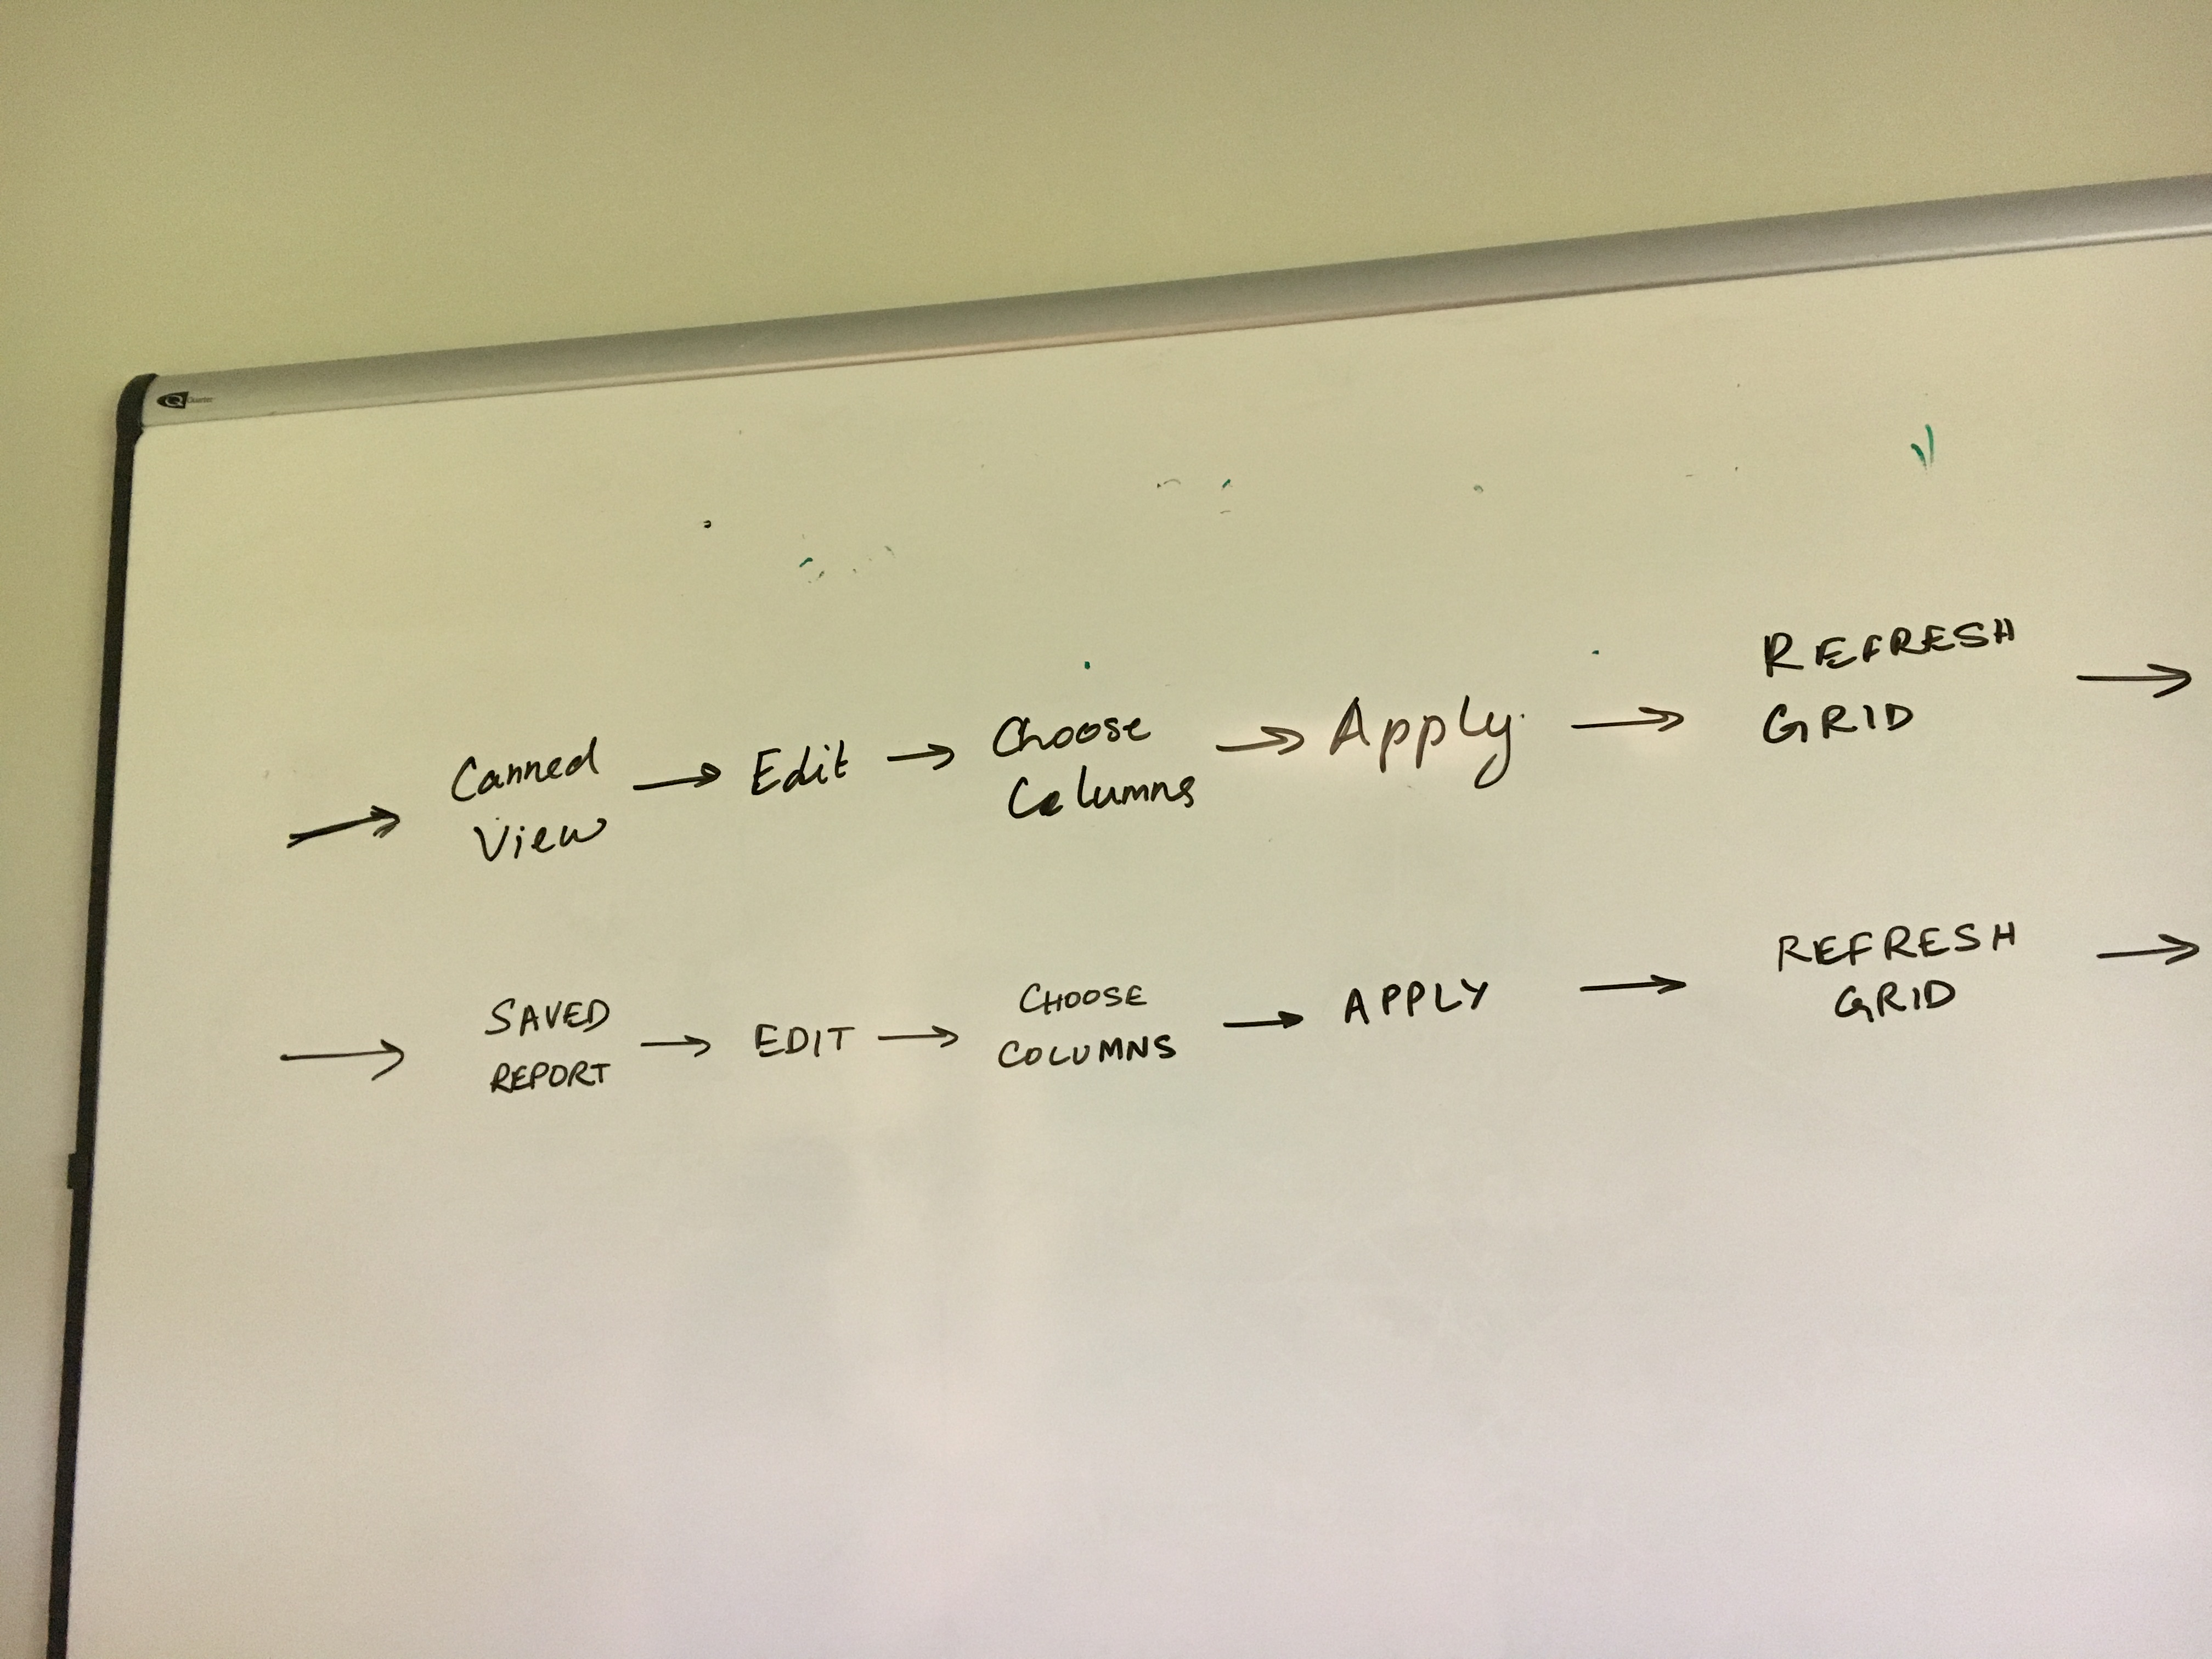 Quartet
→ Canned View → Edit → Choose Columns → Apply → REFRESH GRID →
→ SAVED REPORT → EDIT → CHOOSE COLUMNS → APPLY → REFRESH GRID →